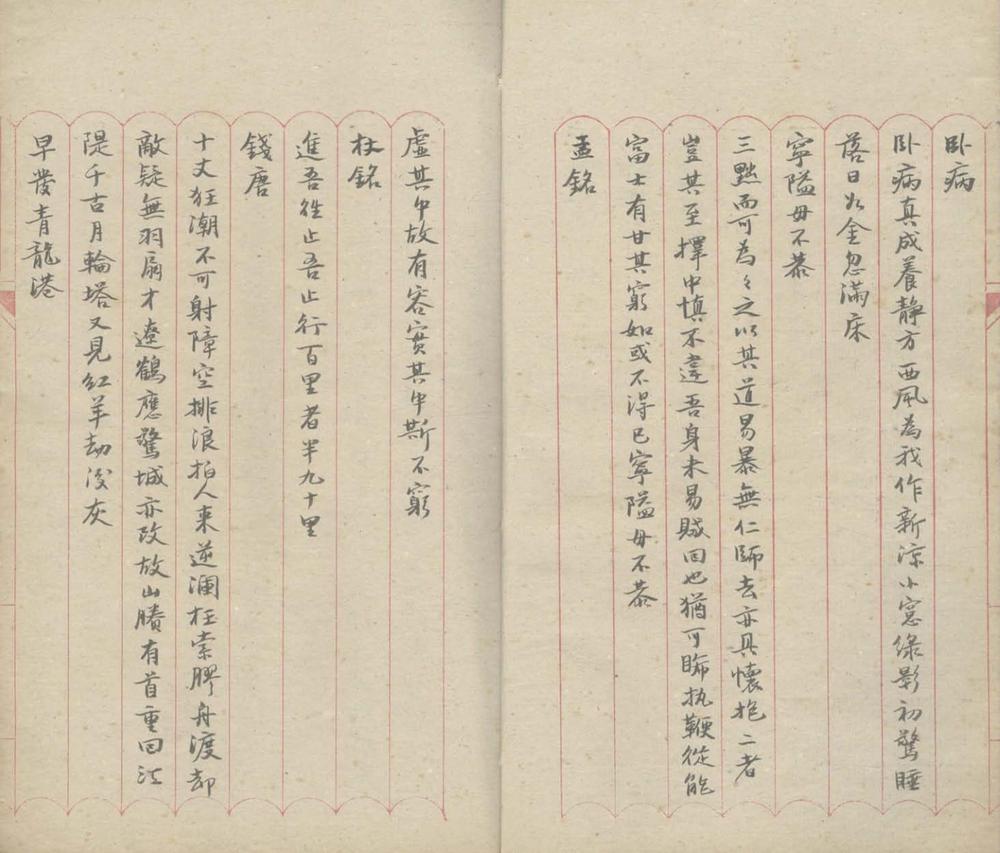 卧病
卧病真成養静方西風為我作新涼小窓緑影初驚睡
落日如金忽滿床
寧隘毋不恭
三黜而可為々之以其道易暴無仁師去亦具懷抱二者
豈其至擇中慎不違吾身未易賊回也猶可睎執鞭從能
富士有甘其窮如或不得已寧隘毋不恭
盂銘
虛其中故有容實其中斯不窮
杖銘
進吾徃止吾止行百里者半九十里
錢唐
十丈狂潮不可射障空排浪拍人来逆瀾枉索膠舟渡却
敵疑無羽扇才遼鶴應驚城亦改故山賸有首重回江
隄千古月輪塔又見紅羊劫後灰
早發青龍港